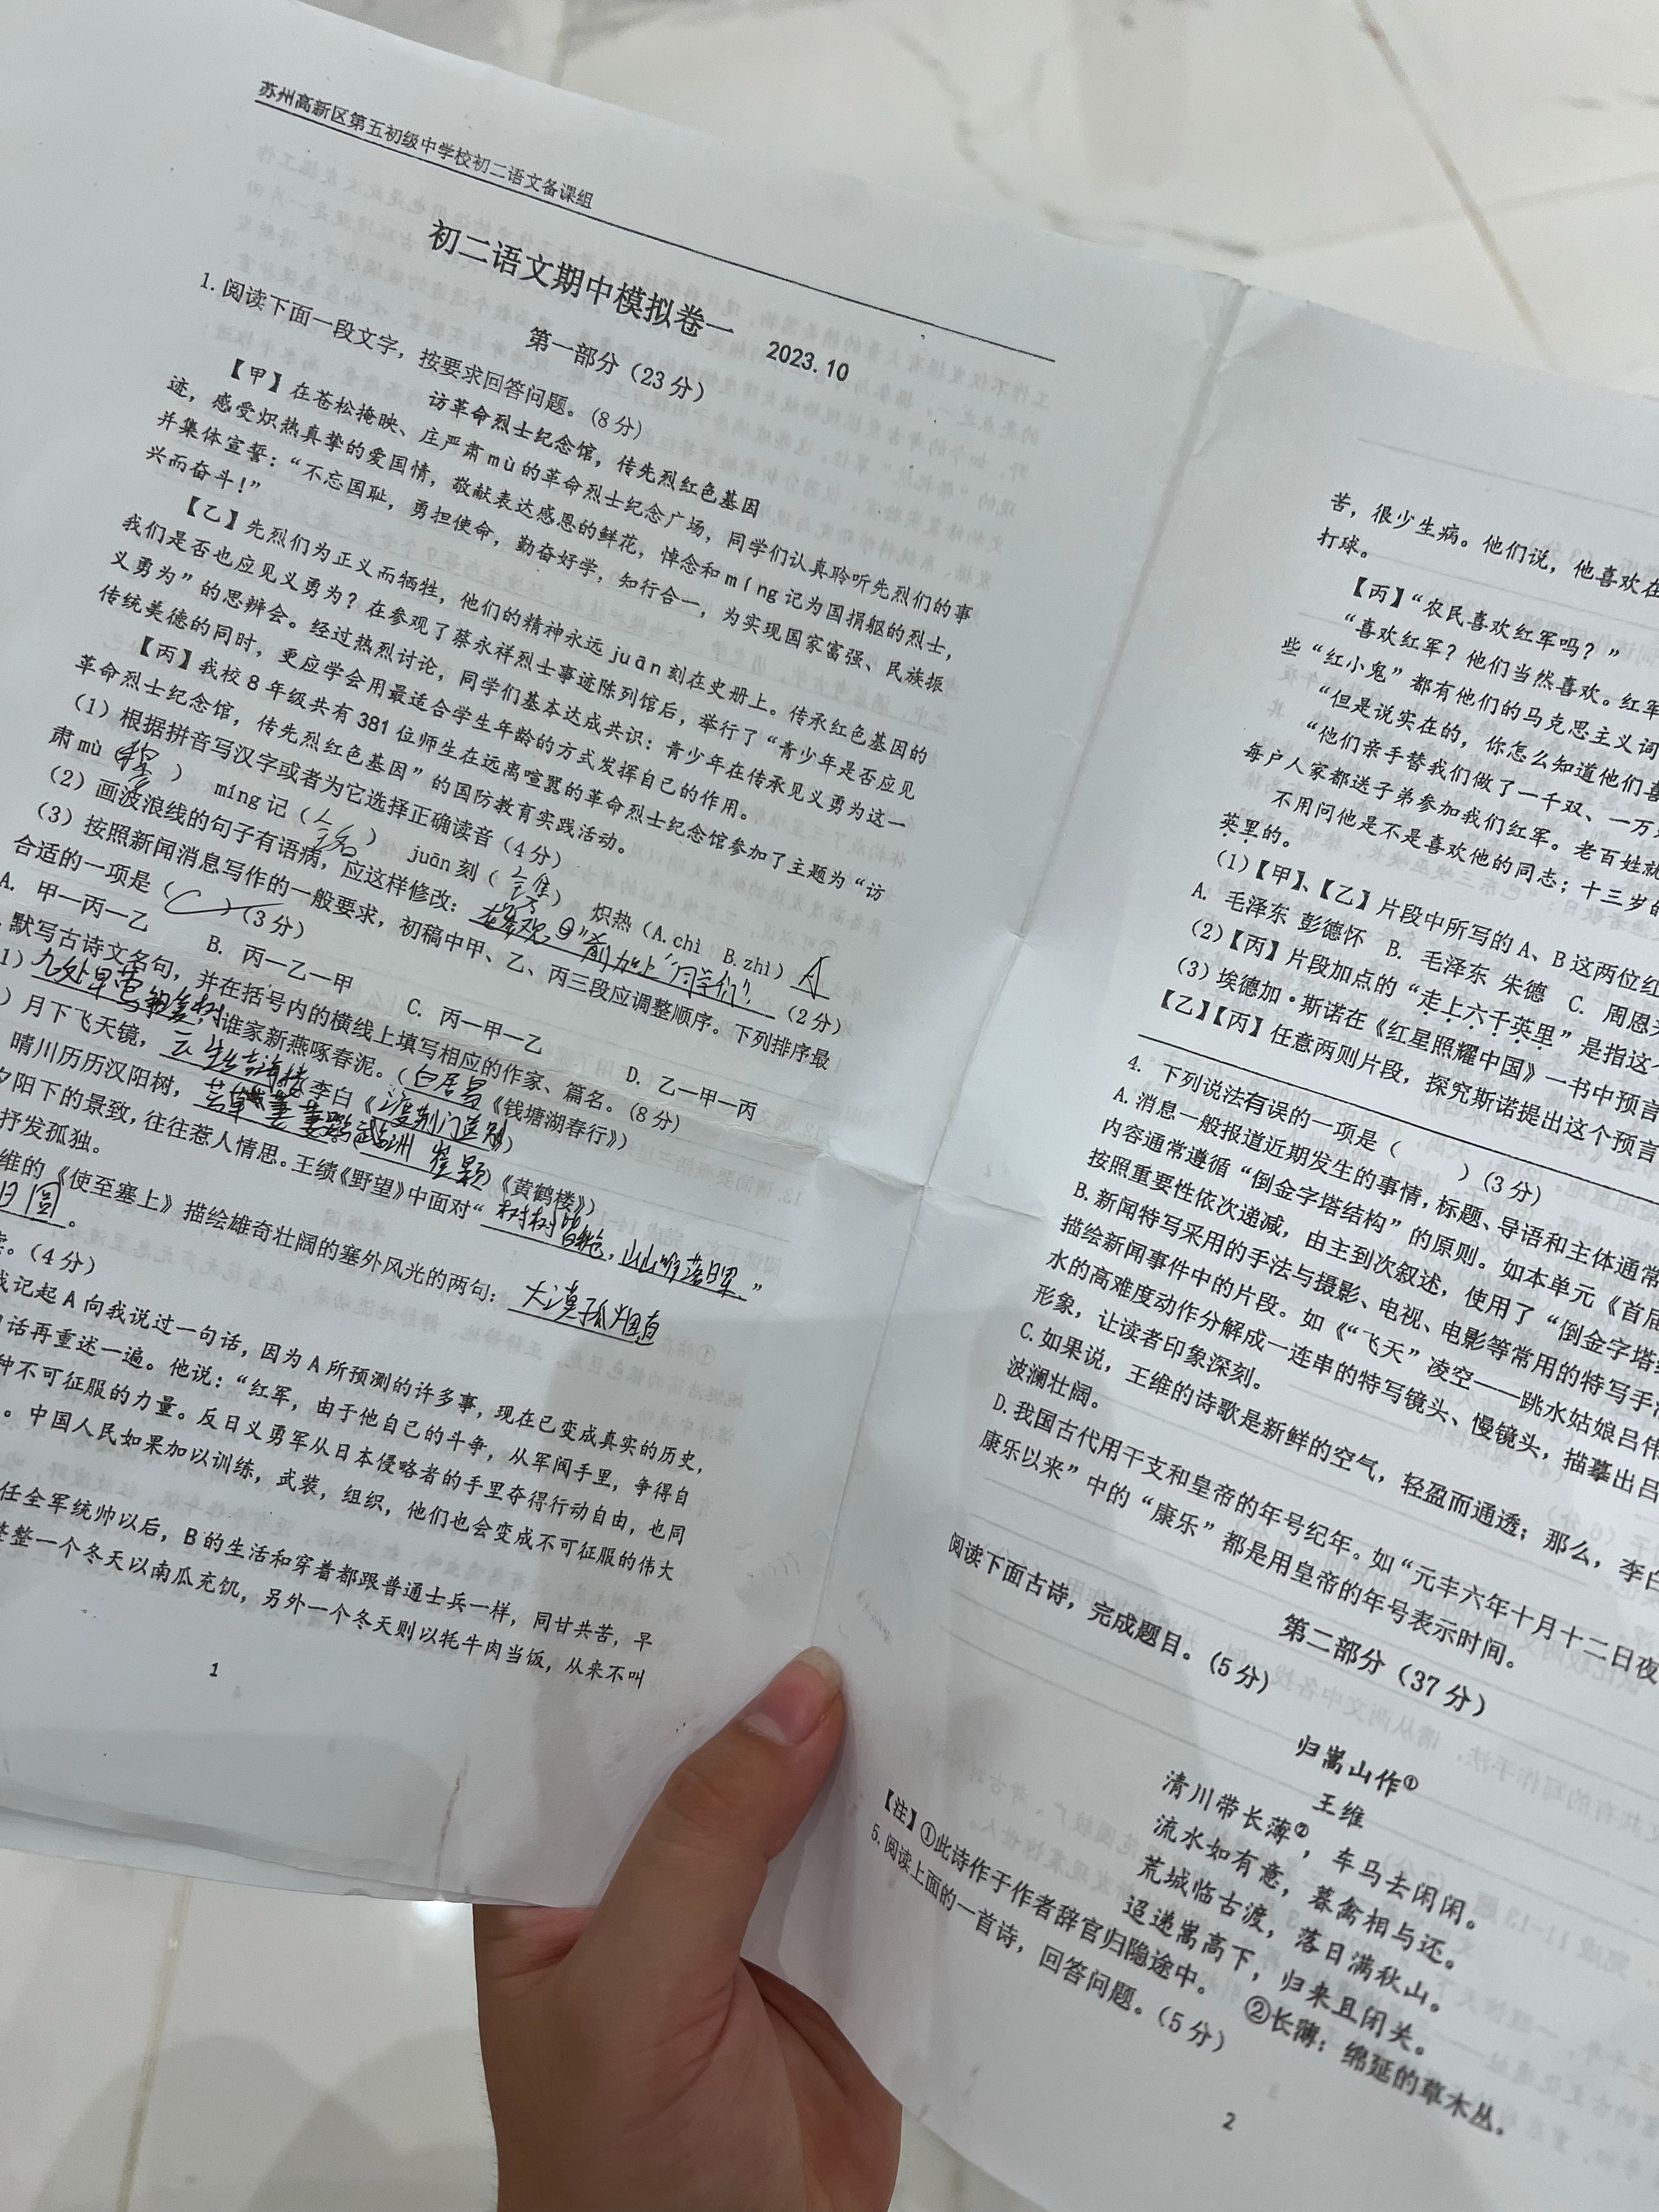 苏州高新区第五初级中学校初二语文备课组
初二语文期中模拟卷一
2023.10
第一部分（23分）
1. 阅读下面一段文字，按要求回答问题。（8分）
访革命烈士纪念馆，传先烈红色基因
【甲】在苍松掩映、庄严肃mù的革命烈士纪念广场，同学们认真聆听先烈们的事
迹，感受炽热真挚的爱国情，敬献表达感恩的鲜花，悼念和míng记为国捐躯的烈士，
并集体宣誓：“不忘国耻，勇担使命，勤奋好学，知行合一，为实现国家富强、民族振
兴而奋斗！”
【乙】先烈们为正义而牺牲，他们的精神永远juān刻在史册上。传承红色基因的
我们是否也应见义勇为？在参观了蔡永祥烈士事迹陈列馆后，举行了“青少年是否应见
义勇为”的思辨会。经过热烈讨论，同学们基本达成共识：青少年在传承见义勇为这一
传统美德的同时，更应学会用最适合学生年龄的方式发挥自己的作用。
【丙】我校8年级共有381位师生在远离喧嚣的革命烈士纪念馆参加了主题为“访
革命烈士纪念馆，传先烈红色基因”的国防教育实践活动。
（1）根据拼音写汉字或者为它选择正确读音（4分）
肃mù（穆） míng记（铭） juān刻（镌） 炽热（A.chì B.zhì）A
（2）画波浪线的句子有语病，应这样修改：在“参观”前加上“同学们”。（2分）
（3）按照新闻消息写作的一般要求，初稿中甲、乙、丙三段应调整顺序。下列排序最
合适的一项是（C）（3分）
A. 甲一丙一乙 B. 丙一乙一甲 C. 丙一甲一乙 D. 乙一甲一丙
默写古诗文名句，并在括号内的横线上填写相应的作家、篇名。（8分）
1）几处早莺争暖树，谁家新燕啄春泥。（白居易《钱塘湖春行》）
）月下飞天镜，云生结海楼李白《渡荆门送别》）
晴川历历汉阳树，芳草萋萋鹦鹉洲 崔颢《黄鹤楼》）
夕阳下的景致，往往惹人情思。王绩《野望》中面对“树树皆秋色，山山唯落日晖。”
抒发孤独。
维的《使至塞上》描绘雄奇壮阔的塞外风光的两句：大漠孤烟直
日圆。
。（4分）
我记起A向我说过一句话，因为A所预测的许多事，现在已变成真实的历史，
话再重述一遍。他说：“红军，由于他自己的斗争，从军阀手里，争得自
种不可征服的力量。反日义勇军从日本侵略者的手里夺得行动自由，也同
。中国人民如果加以训练，武装，组织，他们也会变成不可征服的伟大
任全军统帅以后，B的生活和穿着都跟普通士兵一样，同甘共苦，早
整整一个冬天以南瓜充饥，另外一个冬天则以牦牛肉当饭，从来不叫
1
苦，很少生病。他们说，他喜欢在
打球。
【丙】“农民喜欢红军吗？”
“喜欢红军？他们当然喜欢。红军
些“红小鬼”都有他们的马克思主义词
“但是说实在的，你怎么知道他们喜
“他们亲手替我们做了一千双、一万
每户人家都送子弟参加我们红军。老百姓就
不用问他是不是喜欢他的同志；十三岁的
英里的。
（1）【甲】、【乙】片段中所写的A、B这两位红
A. 毛泽东 彭德怀 B. 毛泽东 朱德 C. 周恩
（2）【丙】片段加点的“走上六千英里”是指这
（3）埃德加·斯诺在《红星照耀中国》一书中预言
【乙】【丙】任意两则片段，探究斯诺提出这个预言
4. 下列说法有误的一项是（ ）（3分）
A. 消息一般报道近期发生的事情，标题、导语和主体通常
内容通常遵循“倒金字塔结构”的原则。如本单元《首届
按照重要性依次递减，由主到次叙述，使用了“倒金字塔
B. 新闻特写采用的手法与摄影、电视、电影等常用的特写手
描绘新闻事件中的片段。如《“飞天”凌空——跳水姑娘吕伟
水的高难度动作分解成一连串的特写镜头、慢镜头，描摹出吕
形象，让读者印象深刻。
C. 如果说，王维的诗歌是新鲜的空气，轻盈而通透；那么，李白
波澜壮阔。
D. 我国古代用干支和皇帝的年号纪年。如“元丰六年十月十二日夜
康乐以来”中的“康乐”都是用皇帝的年号表示时间。
第二部分（37分）
阅读下面古诗，完成题目。（5分）
归嵩山作①
王维
清川带长薄②，车马去闲闲。
流水如有意，暮禽相与还。
荒城临古渡，落日满秋山。
迢递嵩高下，归来且闭关。
【注】①此诗作于作者辞官归隐途中。 ②长薄：绵延的草木丛。
5. 阅读上面的一首诗，回答问题。（5分）
2